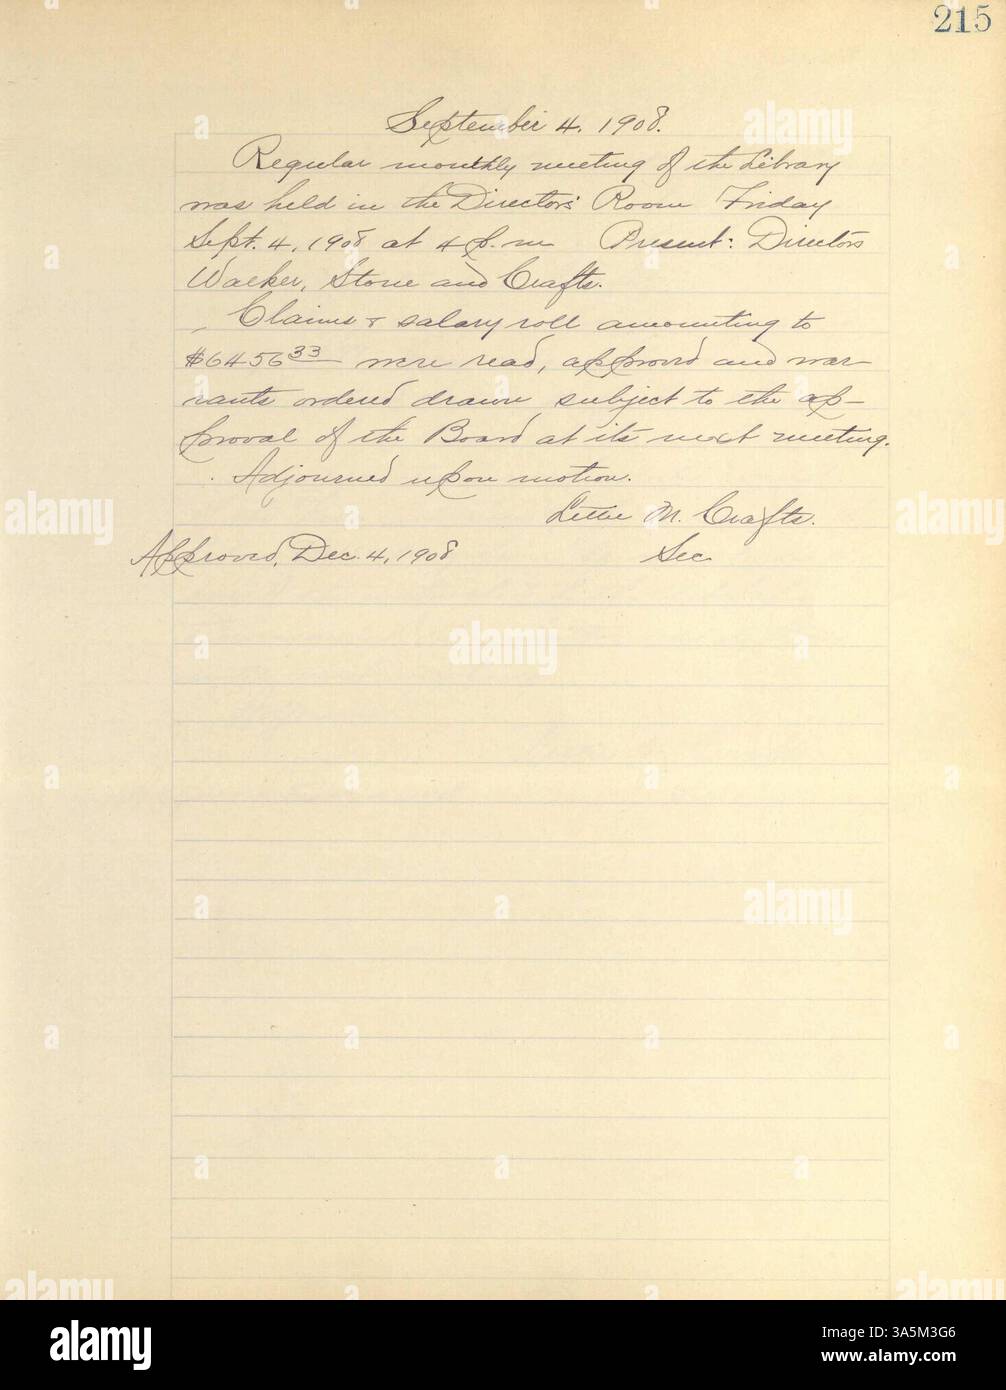 215
September 4, 1908.
Regular monthly meeting of the Library
was held in the Directors' Room Friday
Sept. 4, 1908 at 4 p.m. Present: Directors
Walker, Stone and Crafts.
Claims & salary roll amounting to
$6456 33 were read, approved and war
rants ordered drawn subject to the ap-
proval of the Board at its next meeting.
Adjourned upon motion.
Lettie M. Crafts.
Approved, Dec. 4, 1908 Sec
alamy
Image ID: A3A5M3G6
www.alamy.com